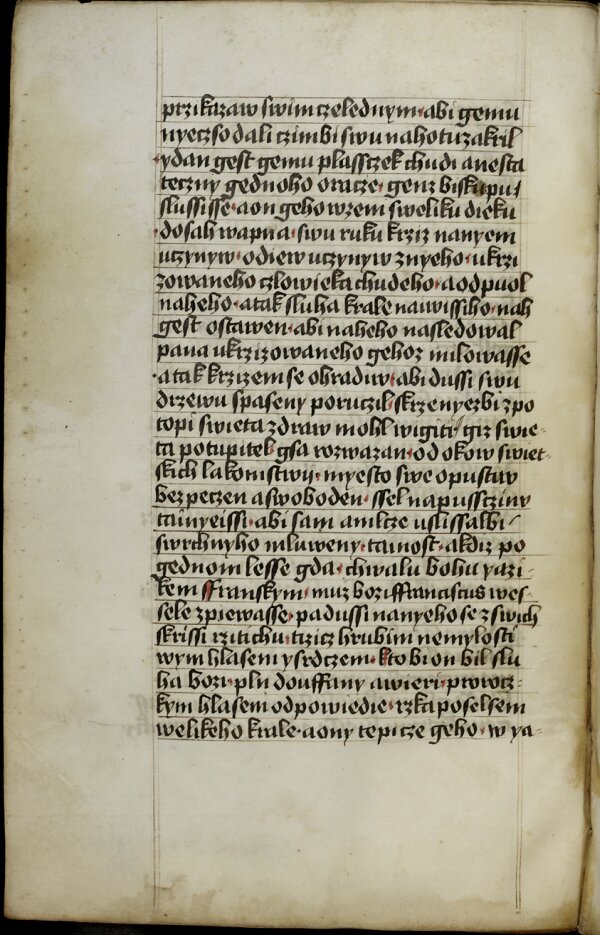 przikazaw swim czelednym · abi gemu
nyeczso dali czim bi swu nahotu zakril
ydan gest gemu plassczek chudi a nesta
teczny gednoho oracze · genz biskupu
slussisse · a on geho wzem s weliku dieku
dosah wapna · swu ruku krziz na nyem
uczynyw · odiew uczynyw z nyeho · ukrzi
zowaneho czlowieka chudeho · a od puol
naheho · a tak sluha krale nawissiho · nah
gest ostawen · abi naheho nasledowal
pana ukrzizowaneho gehoz milowasse
· a tak krzizem se ohradiw · abi dussi swu
drzewu spaseny poruczil · skrze nyez bi z po
topi swieta zdraw mohl wigiti · giz swie-
ta potupitel gsa rozwazan · od okow swiet-
skich lakomstwij · myesto swe opustiw
bezpeczen a swoboden · ssel na pussczinu
tainyeissi · abi sam a mlcze uslissal bi
swrchnyho mluweny · tainost · a kdiz po
gednom lesse gda · chwalu bohu yazi-
kem ffranskym · muz bozi ffranciscus wes-
sele zpiewasse · padussi na nyeho se zswich
skrissi rzitichu · tizicz hrubim nemylosti
wym hlasem y srdczem · kto bi on bil slu
ha bozi · pln douffany a wieri · prorocz-
kym hlasem odpowiedie · rzka posel sem
welikeho krale · a ony tepicze geho · w ya-